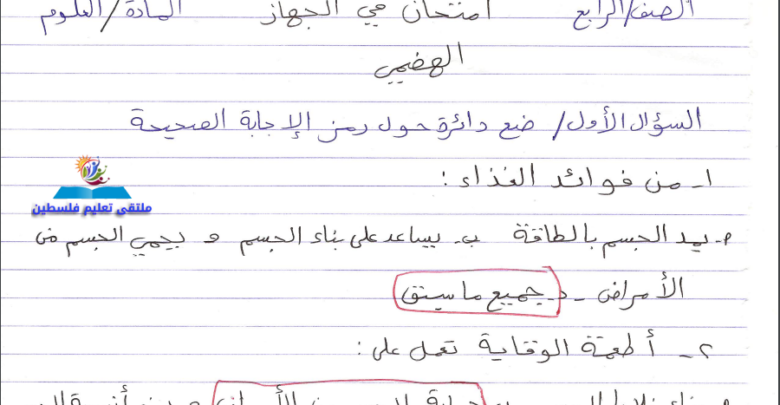 الصف/الرابع امتحان في الجهاز المادة/العلوم
الهضمي
السؤال الأول/ ضع دائرة حول رمز الإجابة الصحيحة
١- من فوائد الغذاء :
ملتقى تعليم فلسطين
أ- يمد الجسم بالطاقة ب- يساعد على بناء الجسم و يحمي الجسم من
الأمراض - د- جميع ما سبق
٢- أطعمة الوقاية تعمل على :